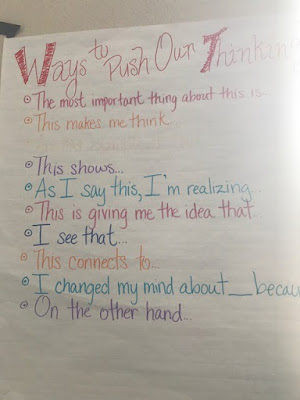 Ways to Push Our Thinking
The most important thing about this is...
This makes me think...
This shows...
As I say this, I'm realizing...
This is giving me the idea that...
I see that...
This connects to...
I changed my mind about __ becau
On the other hand...